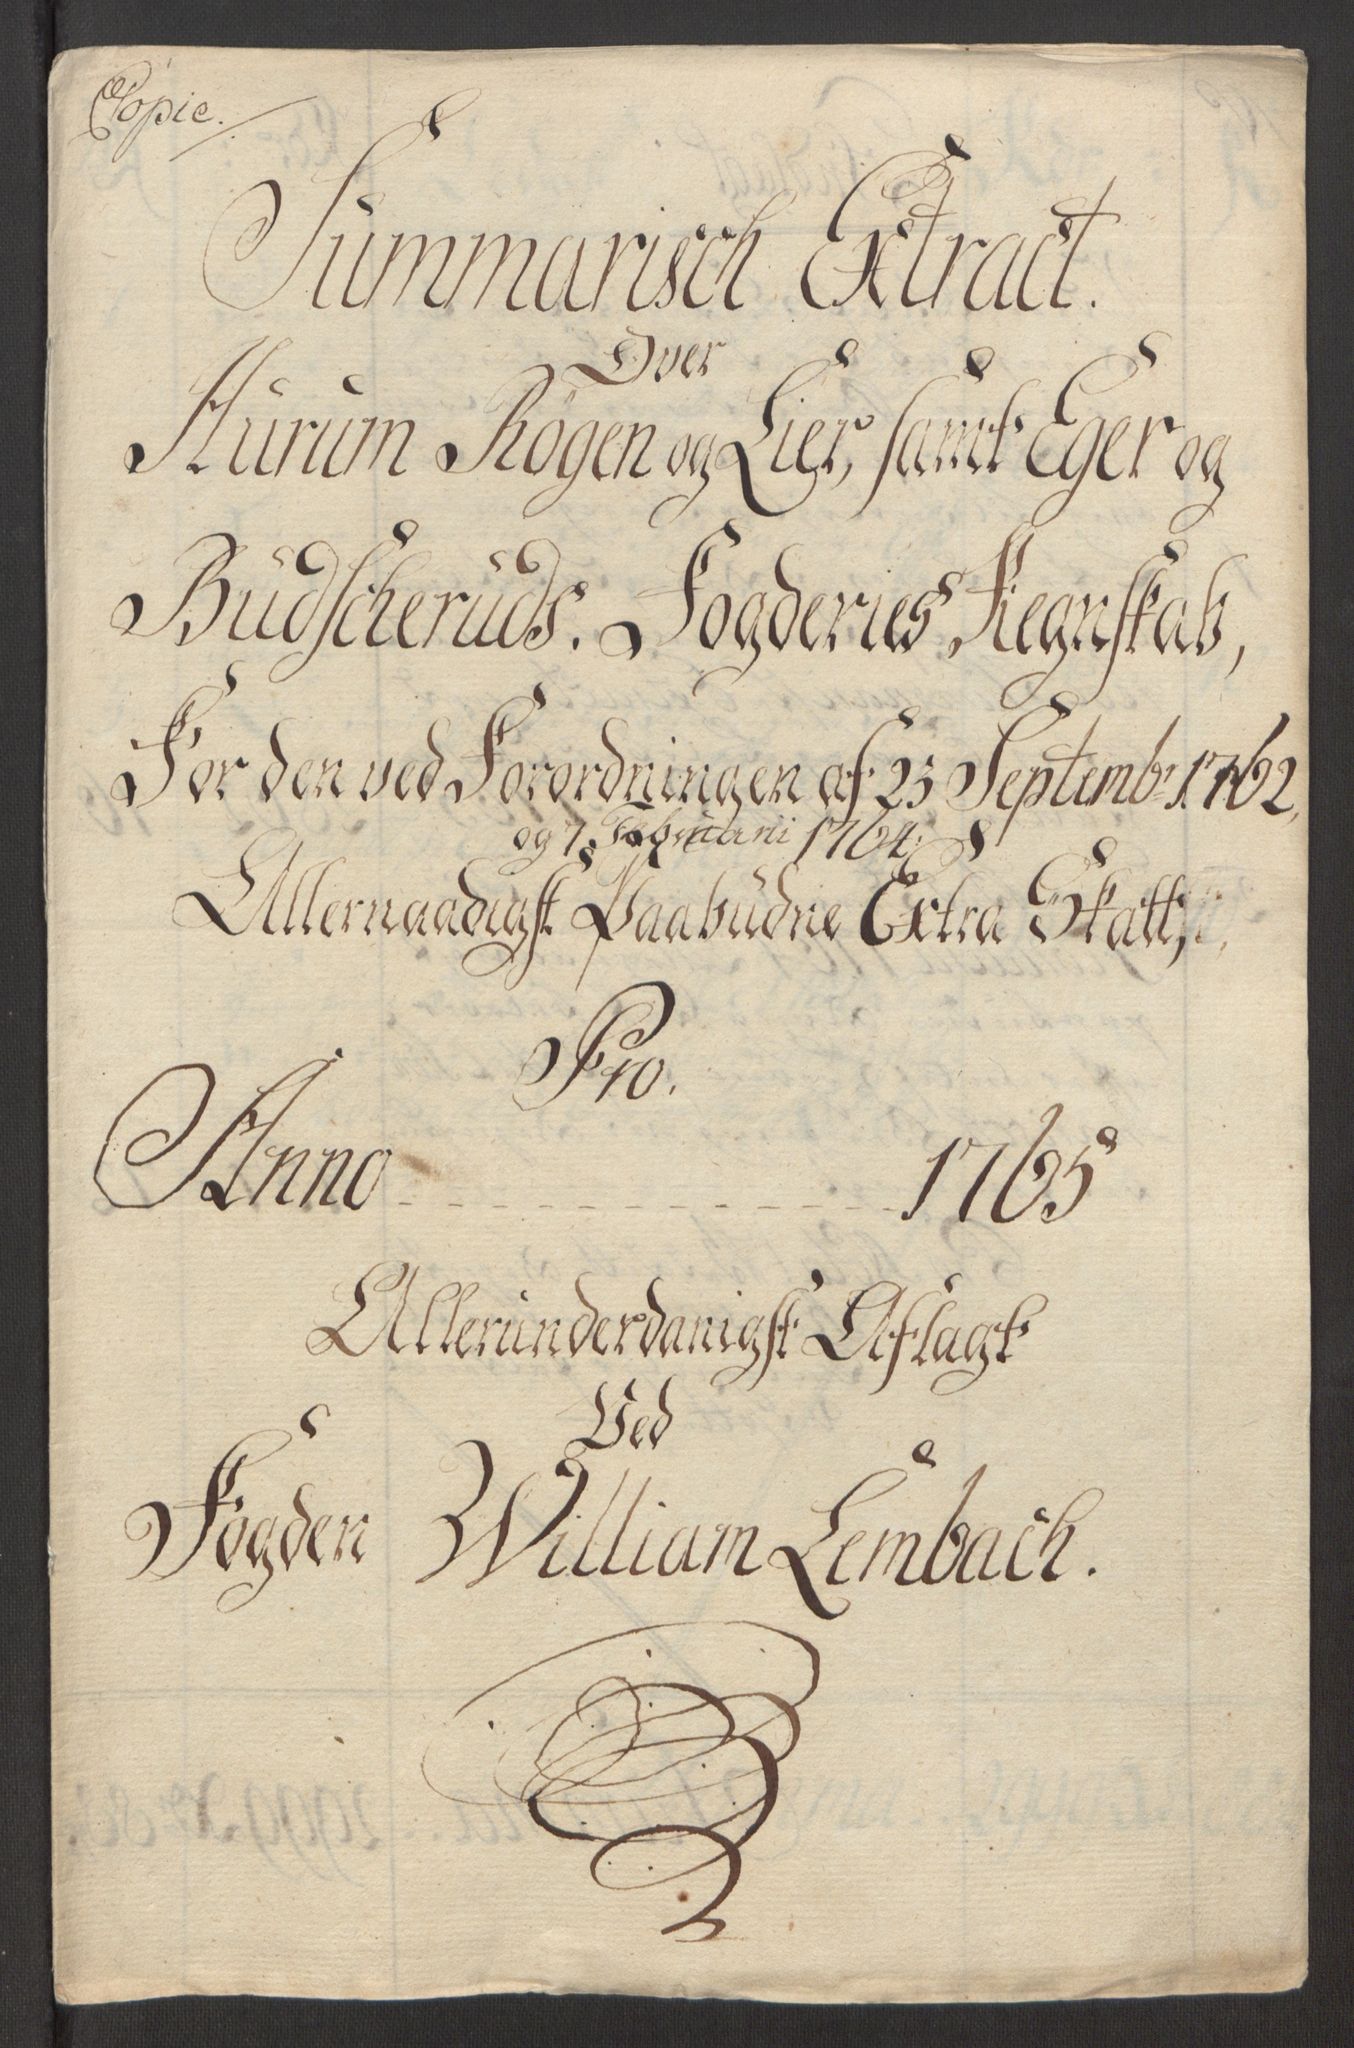 Copie.
Summarisch Extract.
Over
Hurum Røgen og Lier, samt Eger og
Budscheruds. Fogderies Regnskab,
For den ved Forordningen af 23 Septembr 1762,
og 7 Februarii 1764.
Allernaadigst Paabudne Extra Skatt,
Pro.
Anno 1765
Allerunderdanigst Aflagt
Ved
Fogden William Lembach.